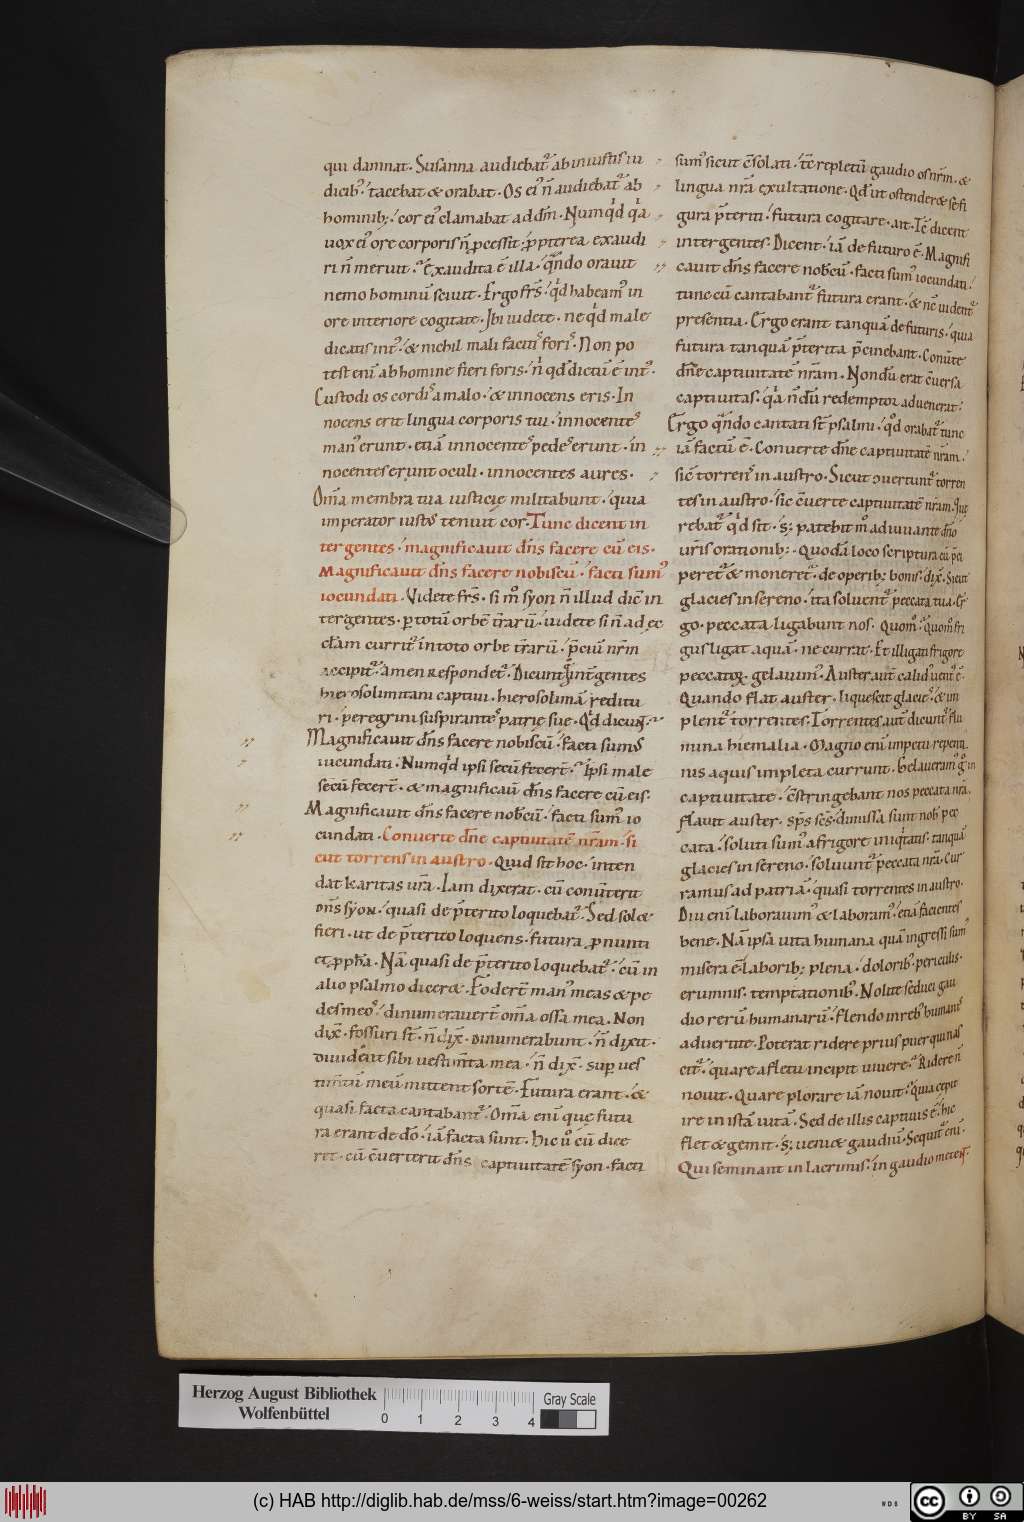 qui damnat. Susanna audiebat᷑ ab iniustis iu
dicib᷒. tacebat & orabat. Os ei᷒ n̄ audiebat᷑ ab
hominib; cor ei᷒ clamabat ad dm̄. Numqͥd qͥa
uox ei᷒ ore corporis n̄ ꝓcessit. ꝓpterea exaudi
ri n̄ meruit. Exaudita ē illa. qn̄do orauit
nemo hominū sciuit. Ergo frs̄. qͥd habeam᷒ in
ore interiore cogitate. Ibi uidete. ne qͥd male
dicatis int᷒. & nichil mali facitis foris. Non po
test enī ab homine fieri foris. n̄ qd̄ dictū ē int᷒.
Custodi os cordis a malo. & innocens eris. In
nocens erit lingua corporis tui. innocentes
man᷒ erunt. etiā innocentes pedes erunt. in
nocentes erunt oculi. innocentes aures.
Om̄a membra tua iusticię militabunt. quia
imperator iustus tenuit cor. Tunc dicent in
ter gentes. magnificauit dn̄s facere cū eis.
Magnificauit dn̄s facere nobiscū. facti sum᷒
iocundati. Videte frs̄. si m᷒ syon n̄ illud dic̄ in
ter gentes. ꝑ totū orbē t̄rarū. uidete si n̄ ad ęc
clam currit᷑ in toto orbe t̄rarū. p̄ciū nr̄m
accipit᷑. amen respondet᷑. Dicunt g᷒ int̄ gentes
hierosolimitani captiui. hierosolimā redditu
ri. peregrini suspirantes patrię sue. Qͥd dicunt.
Magnificauit dn̄s facere nobiscū. facti sumus
iucundati. Numqͥd ipsi secū fecert̄. Ipsi male
secū fecert̄. & magnificauī dn̄s facere cū eis.
Magnificauit dn̄s facere nob̄cū. facti sum᷒ io
cundati. Conuerte dn̄e captiuitatē nr̄am. si
cut torrens in austro. Quid sit hoc. inten
dat karitas ur̄a. Iam dixerat. cū conūterit
dn̄s syon. quasi de p̄terito loquebat᷑. Sed sol&
fieri. ut de p̄terito loquens. futura ꝓnunti
et ꝓph̄a. Nā quasi de p̄terito loquebat᷑. cū in
alio psalmo dicer&. Foderт̄ man᷒ meas & pe
des meos. dinumerauert̄ om̄a ossa mea. Non
dix̄. fossuri st̄. n̄ dix̄. dinumerabunt. n̄ dixit.
diuident sibi uestim̄ta mea. n̄ dix̄. suꝑ ues
timtū meū mittent sortē. Futura erant. &
quasi facta cantabant᷑. Om̄a enī que futu
ra erant de dō. iā facta sunt. Hic ͦu cū dice
ret. cū c̄uerterit dn̄s captiuitatē syon. facti
sum᷒ sicut c̄solati. tc̄ repletū gaudio os nr̄m. &
lingua nr̄a exultatione. Qd̄ ut ostender& se fi
gura p̄teriti. futura cogitare. ait. Tc̄ dicent
inter gentes. Dicent. iā de futuro ē. Magnifi
cauit dn̄s facere nob̄cū. facti sum᷒ iocundati.
tunc cū cantabant᷑ futura erant. & nc̄ uident᷑
presentia. Ergo erant tanquā de futuris. quia
futura tanquā p̄terita p̄cinebant. Conūte
dn̄e captiuitatē nr̄am. Nondū erat c̄uersa
captiuitas. qͥa n̄dū redemptor aduenerat.
Ergo qn̄do cantati st̄ psalmi. qͦd orabat᷑ tunc
iā factū ē. Conuerte dn̄e captiuitatē nr̄am.
sic̄ torrens in austro. Sicut ꝯuertunt᷑ torren
tes in austro. sic c̄uerte captiuitatē nr̄am. Que
rebat᷑ qͥd sit. s; patebit m᷒ adiuuante dn̄o
ur̄is orationib;. Quodā loco scriptura cū p̄ci
peret᷑ & moneret᷑. de operib; bonis. dix̄. Sicut
glacies in sereno. ita soluent᷑ peccata tua. Er
go. peccata ligabunt nos. Quom᷒. Quom᷒ fri
gus ligat aquā. ne currat. Et illigati frigore
peccatoꝝ gelauim᷒. Auster aut̄ calid᷒ uent᷒ ē.
Quando flat auster. liquescit glacies. & im
plent᷑ torrentes. Torrentes aut̄ dicunt᷑ flu
mina hiemalia. Magno enī impetu repenti
nis aquis impleta currunt. Gelaueram᷒ gͦ in
captiuitate. c̄stringebant nos peccata nr̄a.
flauit auster. sps̄ sc̄s. dimissa sunt nob̄ pec
cata. soluti sum᷒ a frigore iniqͥtatis. tanquā
glacies in sereno. soluunt᷑ peccata nr̄a. Cur
ramus ad patriā. quasi torrentes in austro.
Diu enī laborauim᷒ & laboram᷒. etiā facientes
bene. Nā ipsa uita humana quā ingressi sum᷒
misera ē. laborib; plena. dolorib᷒. periculis.
erumnis. temptationib᷒. Nolite seduci gau
dio rerū humanarū. flendo in reb᷒ humanis
aduertite. Poterat ridere prius puer qui nas
cit᷑. quare a fletu incipit uiuere. Ridere n̄
nouit. Quare plorare iā nouit. Quia cepit
ire in istā uitā. Sed de illis captiuis ē. hic
flet & gemit. s; ueni& gaudiū. Sequit᷑ enī.
Qui seminant in lacrimis. in gaudio metent.
Herzog August Bibliothek
Wolfenbüttel
0 1 2 3 4
Gray Scale
(c) HAB http://diglib.hab.de/mss/6-weiss/start.htm?image=00262
WDB
cc BY SA